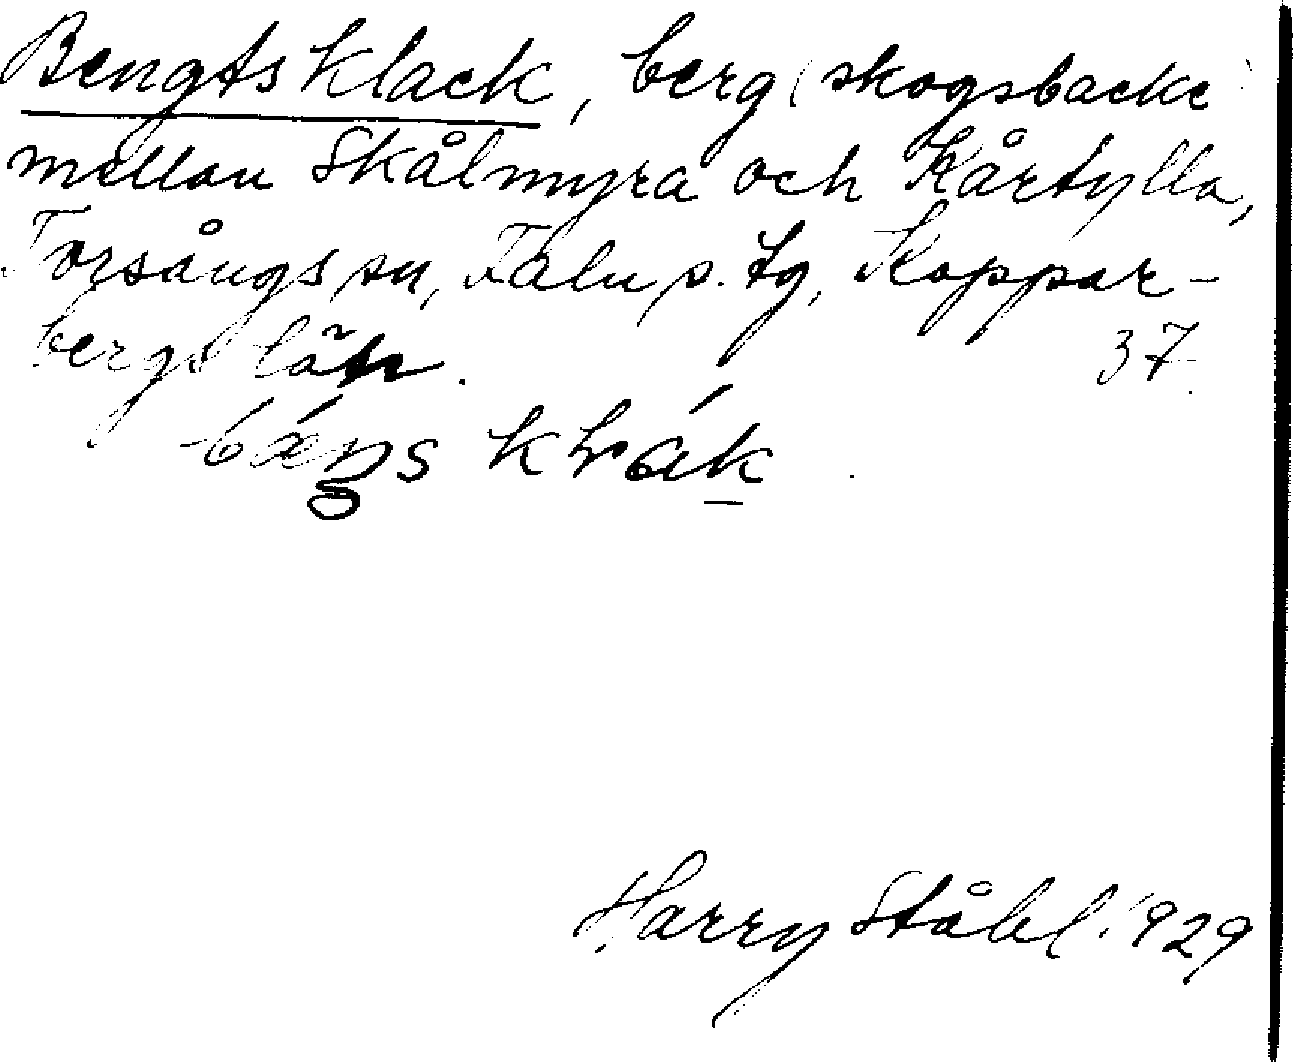 Bengts klack, berg (skogsbacke)
mellan Skålmyra och Kårtylla,
Torsångs sn, Falu s. tg, Koppar-
bergs län. 37.
Harry Ståhl 1929